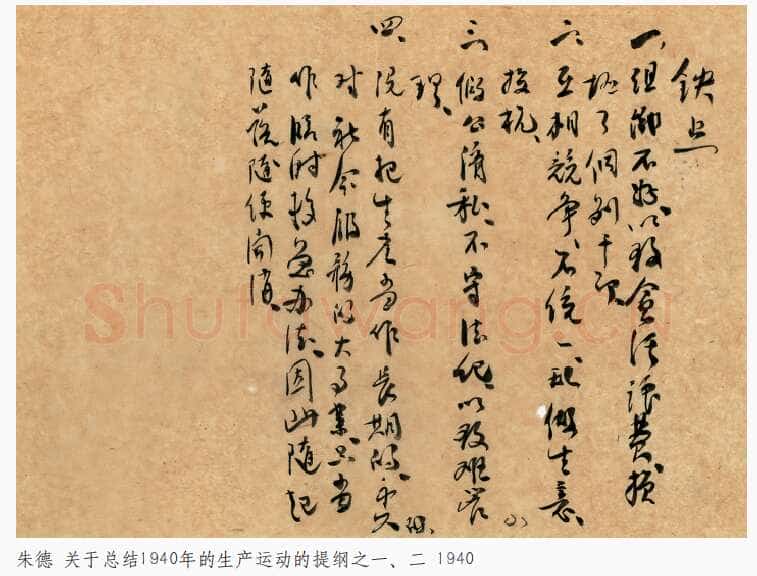 缺点
一、组织不好,以致贪污浪费,损
坏了個别干部
二、互相競争、不统一、乱做生意
投机、
三、假公濟私、不守法纪、以致难管
理、
四、没有把生产当作長期的、永久
对社会服务的大事業、只当
作临时救急办法、因此随起
随落随便開消、
Shufawang.cn
朱德 关于总结1940年的生产运动的提纲之一、二 1940